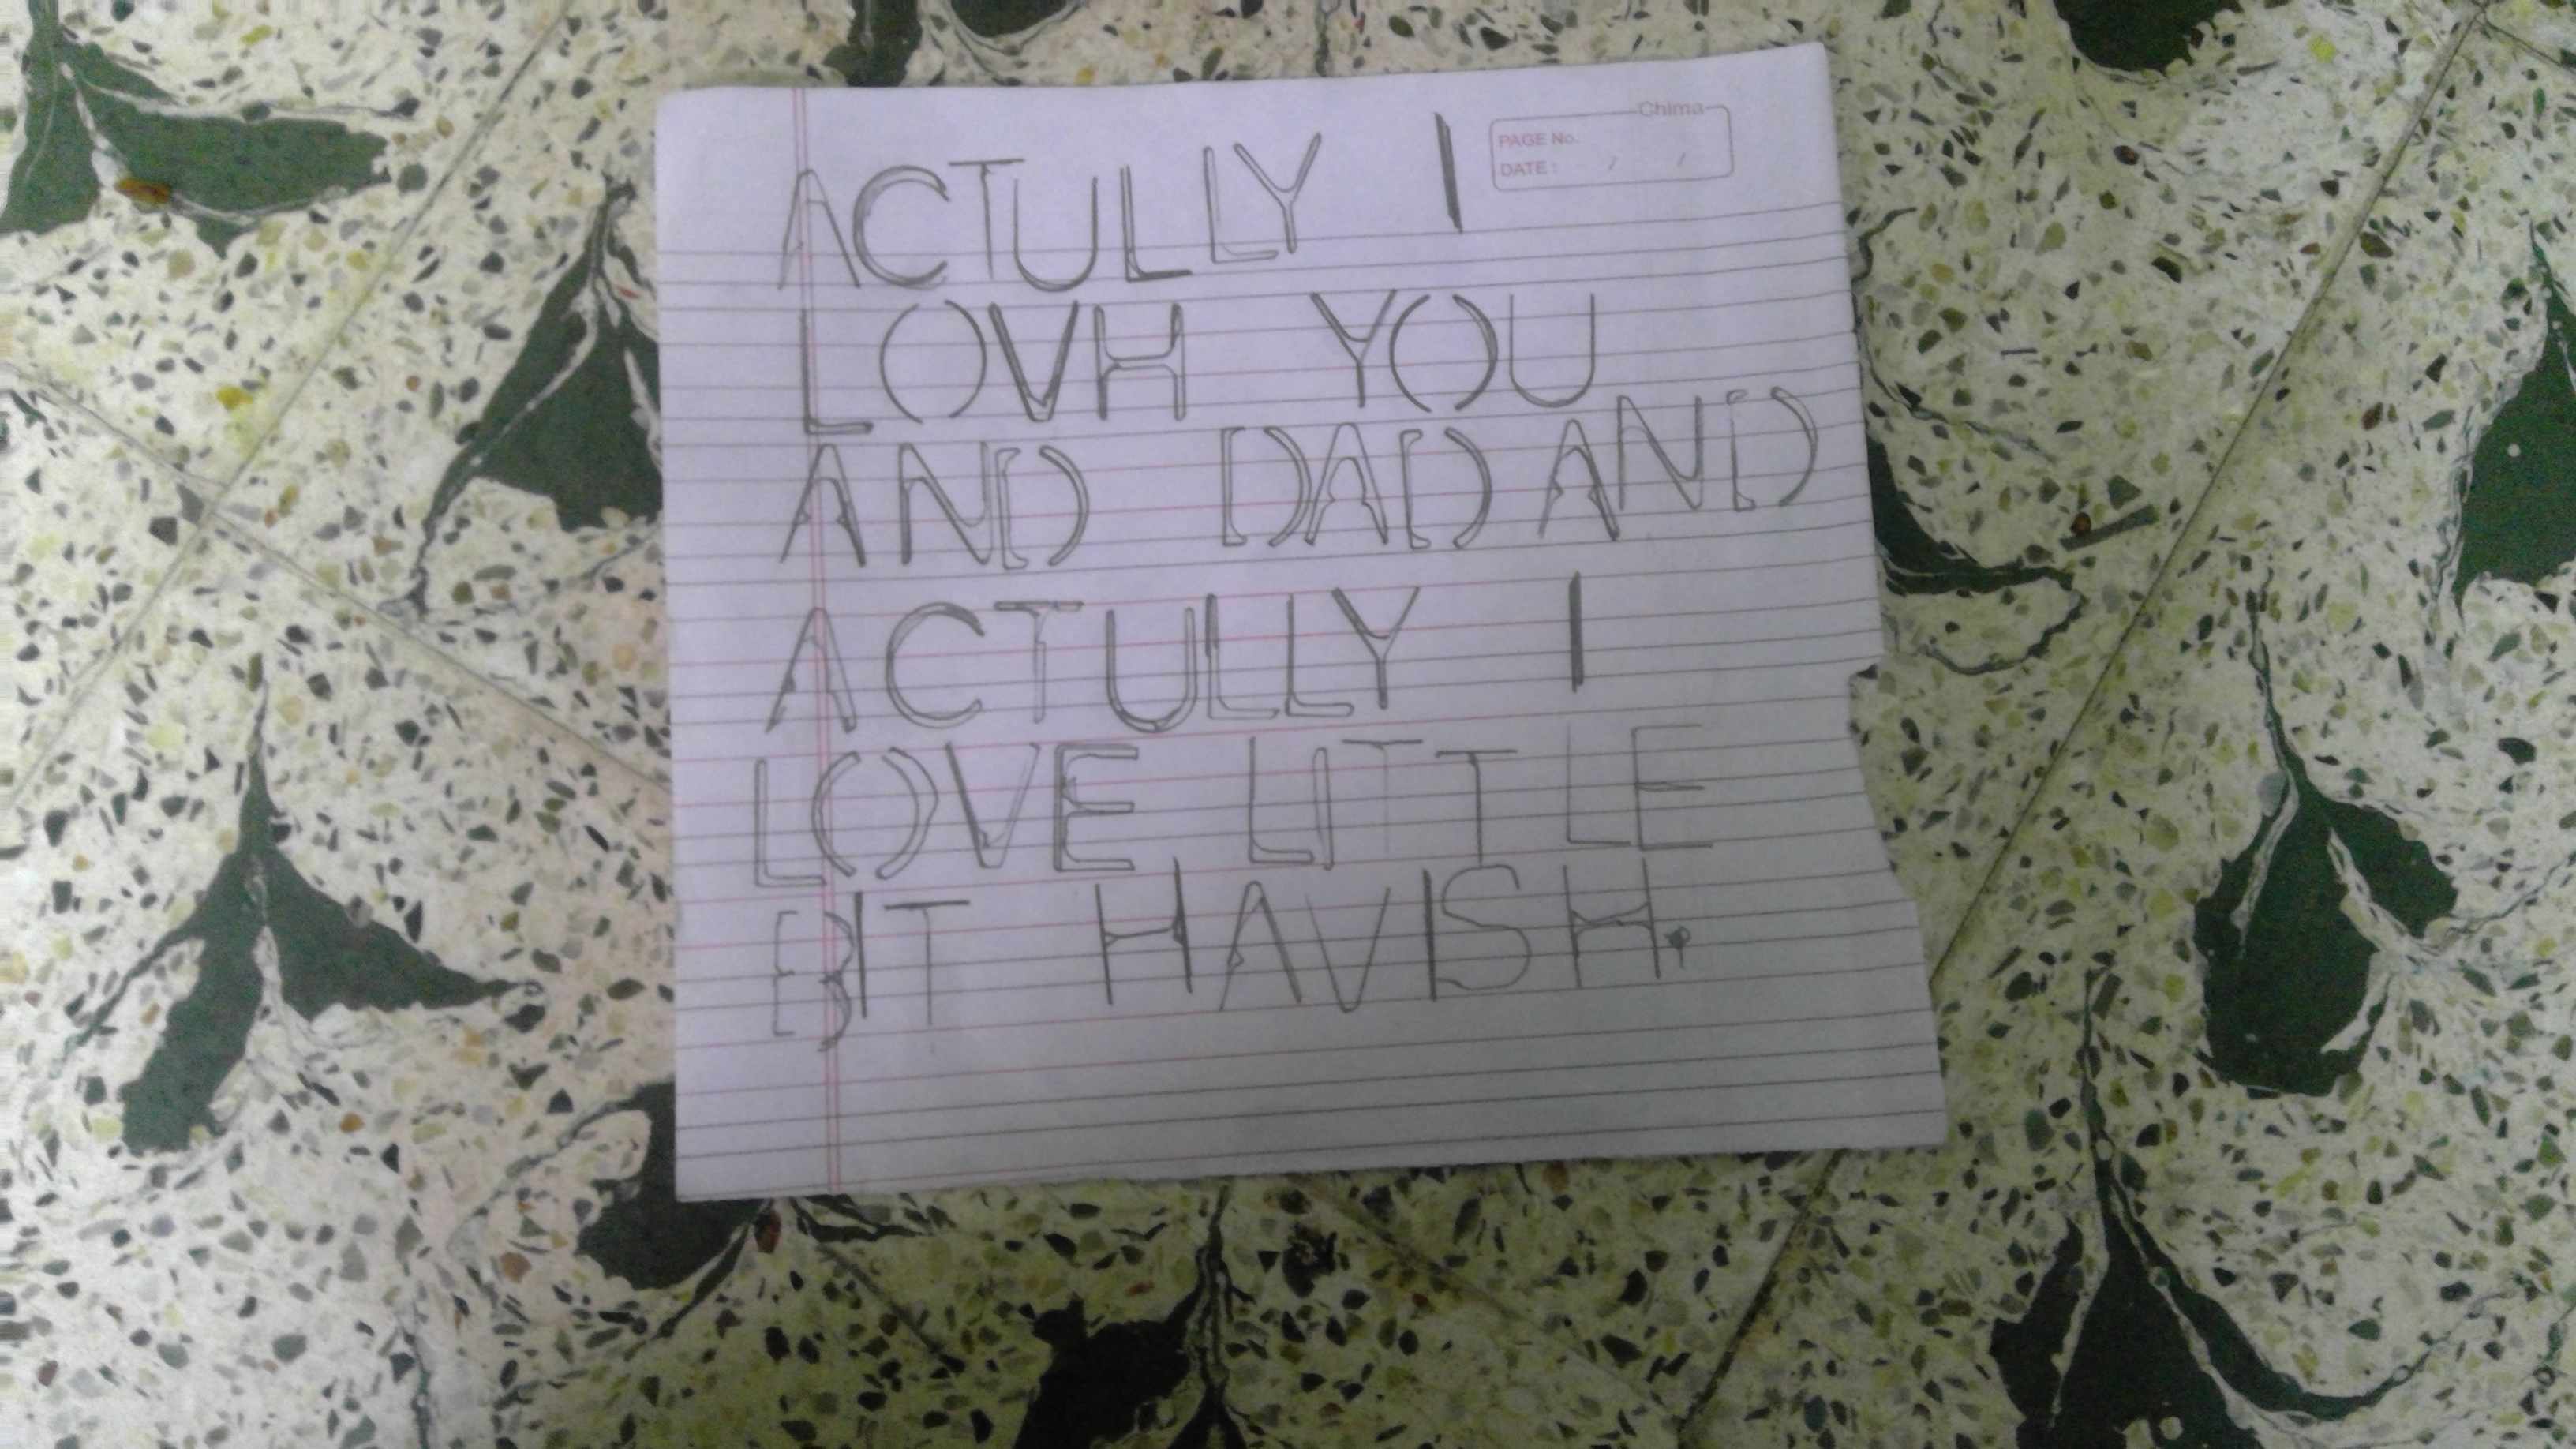 Chima
PAGE No.
DATE : / /
ACTULLY I
LOVH YOU
AND DAD AND
ACTULLY I
LOVE LITTLE
BIT HAVISH.